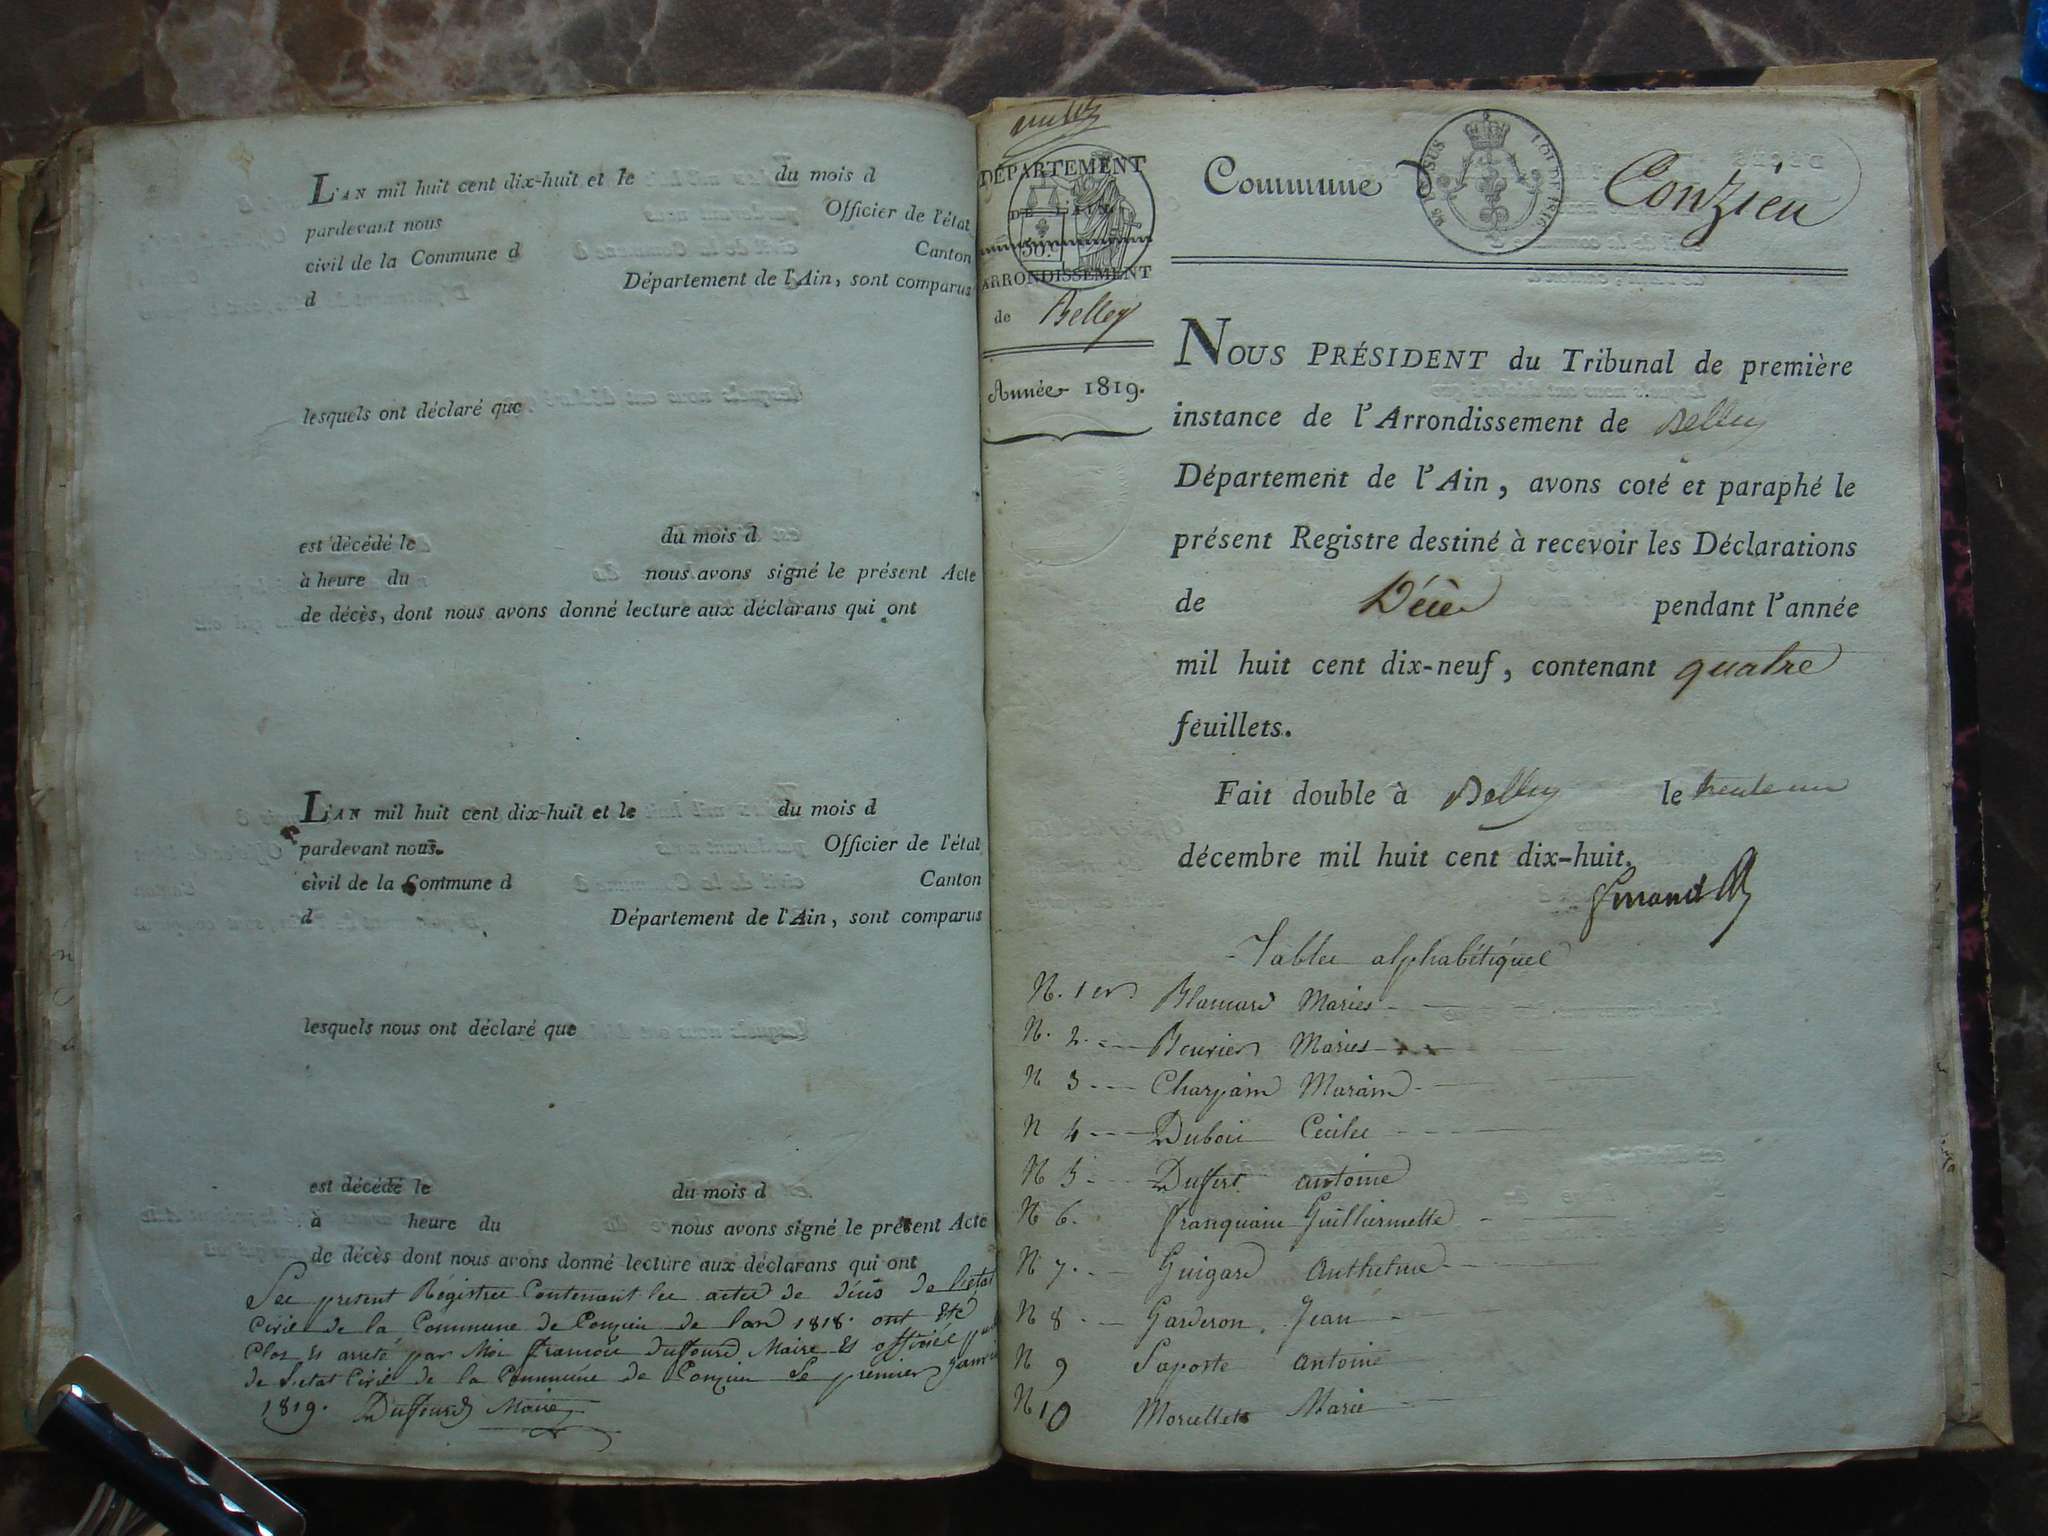 L'AN mil huit cent dix-huit et le du mois d
pardevant nous Officier de l'état
civil de la Commune d Canton
d Département de l'Ain, sont comparus
lesquels ont déclaré que
est décédé le du mois d
à heure du nous avons signé le présent Acte
de décès, dont nous avons donné lecture aux déclarans qui ont
L'AN mil huit cent dix-huit et le du mois d
pardevant nous Officier de l'état
civil de la Commune d Canton
d Département de l'Ain, sont comparus
lesquels nous ont déclaré que
est décédé le du mois d
à heure du nous avons signé le présent Acte
de décès dont nous avons donné lecture aux déclarans qui ont
present Régistre Contenant les actes de décès de l'état
Civil de la Commune de Conzieu de lan 1818. ont été
Clos et arreté par Moi françois Duffourd Maire et officier
de l'etat Civil de la Commune de Conzieu Le premier janvier
1819. Duffourd Maire
DÉPARTEMENT
DE L'AIN
50.c
ARRONDISSEMENT
de Belley
Année 1819.
Commune d Conzieu
NOUS PRÉSIDENT du Tribunal de première
instance de l'Arrondissement de Belley
Département de l'Ain, avons coté et paraphé le
présent Registre destiné à recevoir les Déclarations
de Décès pendant l'année
mil huit cent dix-neuf, contenant quatre
feuillets.
Fait double à Belley le trente un
décembre mil huit cent dix-huit.
Table alphabétique
N. 1er Maries
N. 2. Bouvier Maries
N 3 Charpain
N 4 Dubois Cecile
N 5 Duffert antoine
N 6. franquain Guilliermette
N 7. Guigard Anthelme
N 8 Garderon Jean
N 9 Laporte Antoine
N 10 Morellet Marie